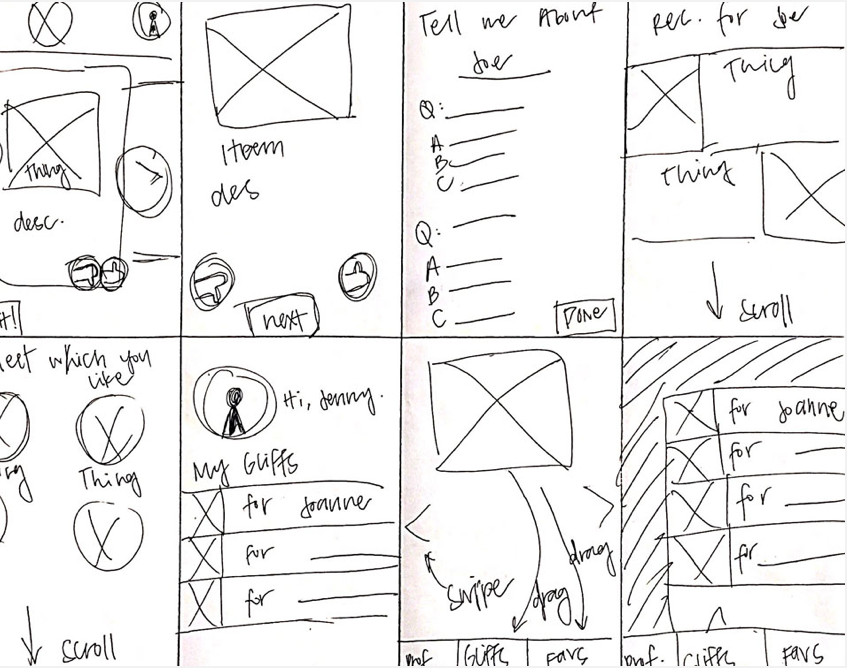 Thing
desc.
t!
Item
des
next
Tell me About
Joe
Q:
A
B
C
Q:
A
B
C
Done
Rec. for Joe
Thing
Thing
Scroll
lect which you
like
Thing
scroll
Hi, Jenny.
My Gliffs
for Joanne
for
for
swipe
drag
drag
Prof
Gliffs
Favs
for Joanne
for
for
for
Prof.
Gliffs
Favs